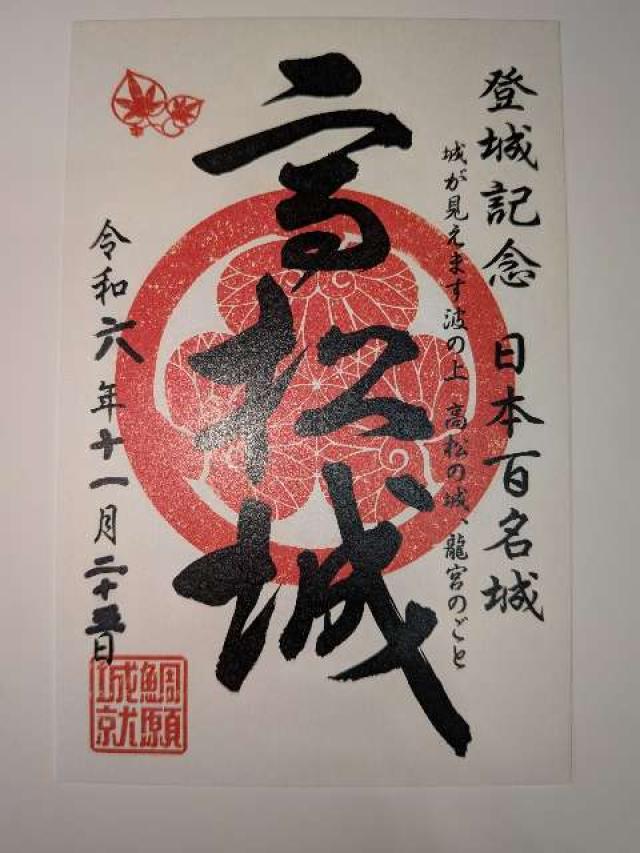 登城記念 日本百名城
城が見えます波の上 高松の城、龍宮のごと
高松城
令和六年十一月二十五日
鯛願
城就